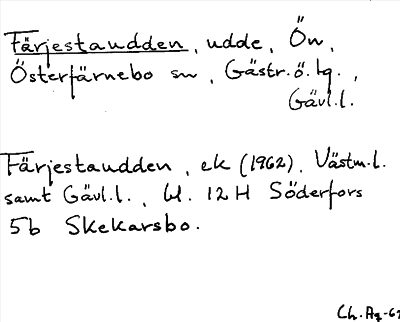 Färjestaudden, udde, Ön,
Österfärnebo sn, Gästr.ö.tg.,
Gävl.l.
Färjestaudden, ek (1962). Västm.l.
samt Gävl.l., bl. 12 H Söderfors
5b Skekarsbo.